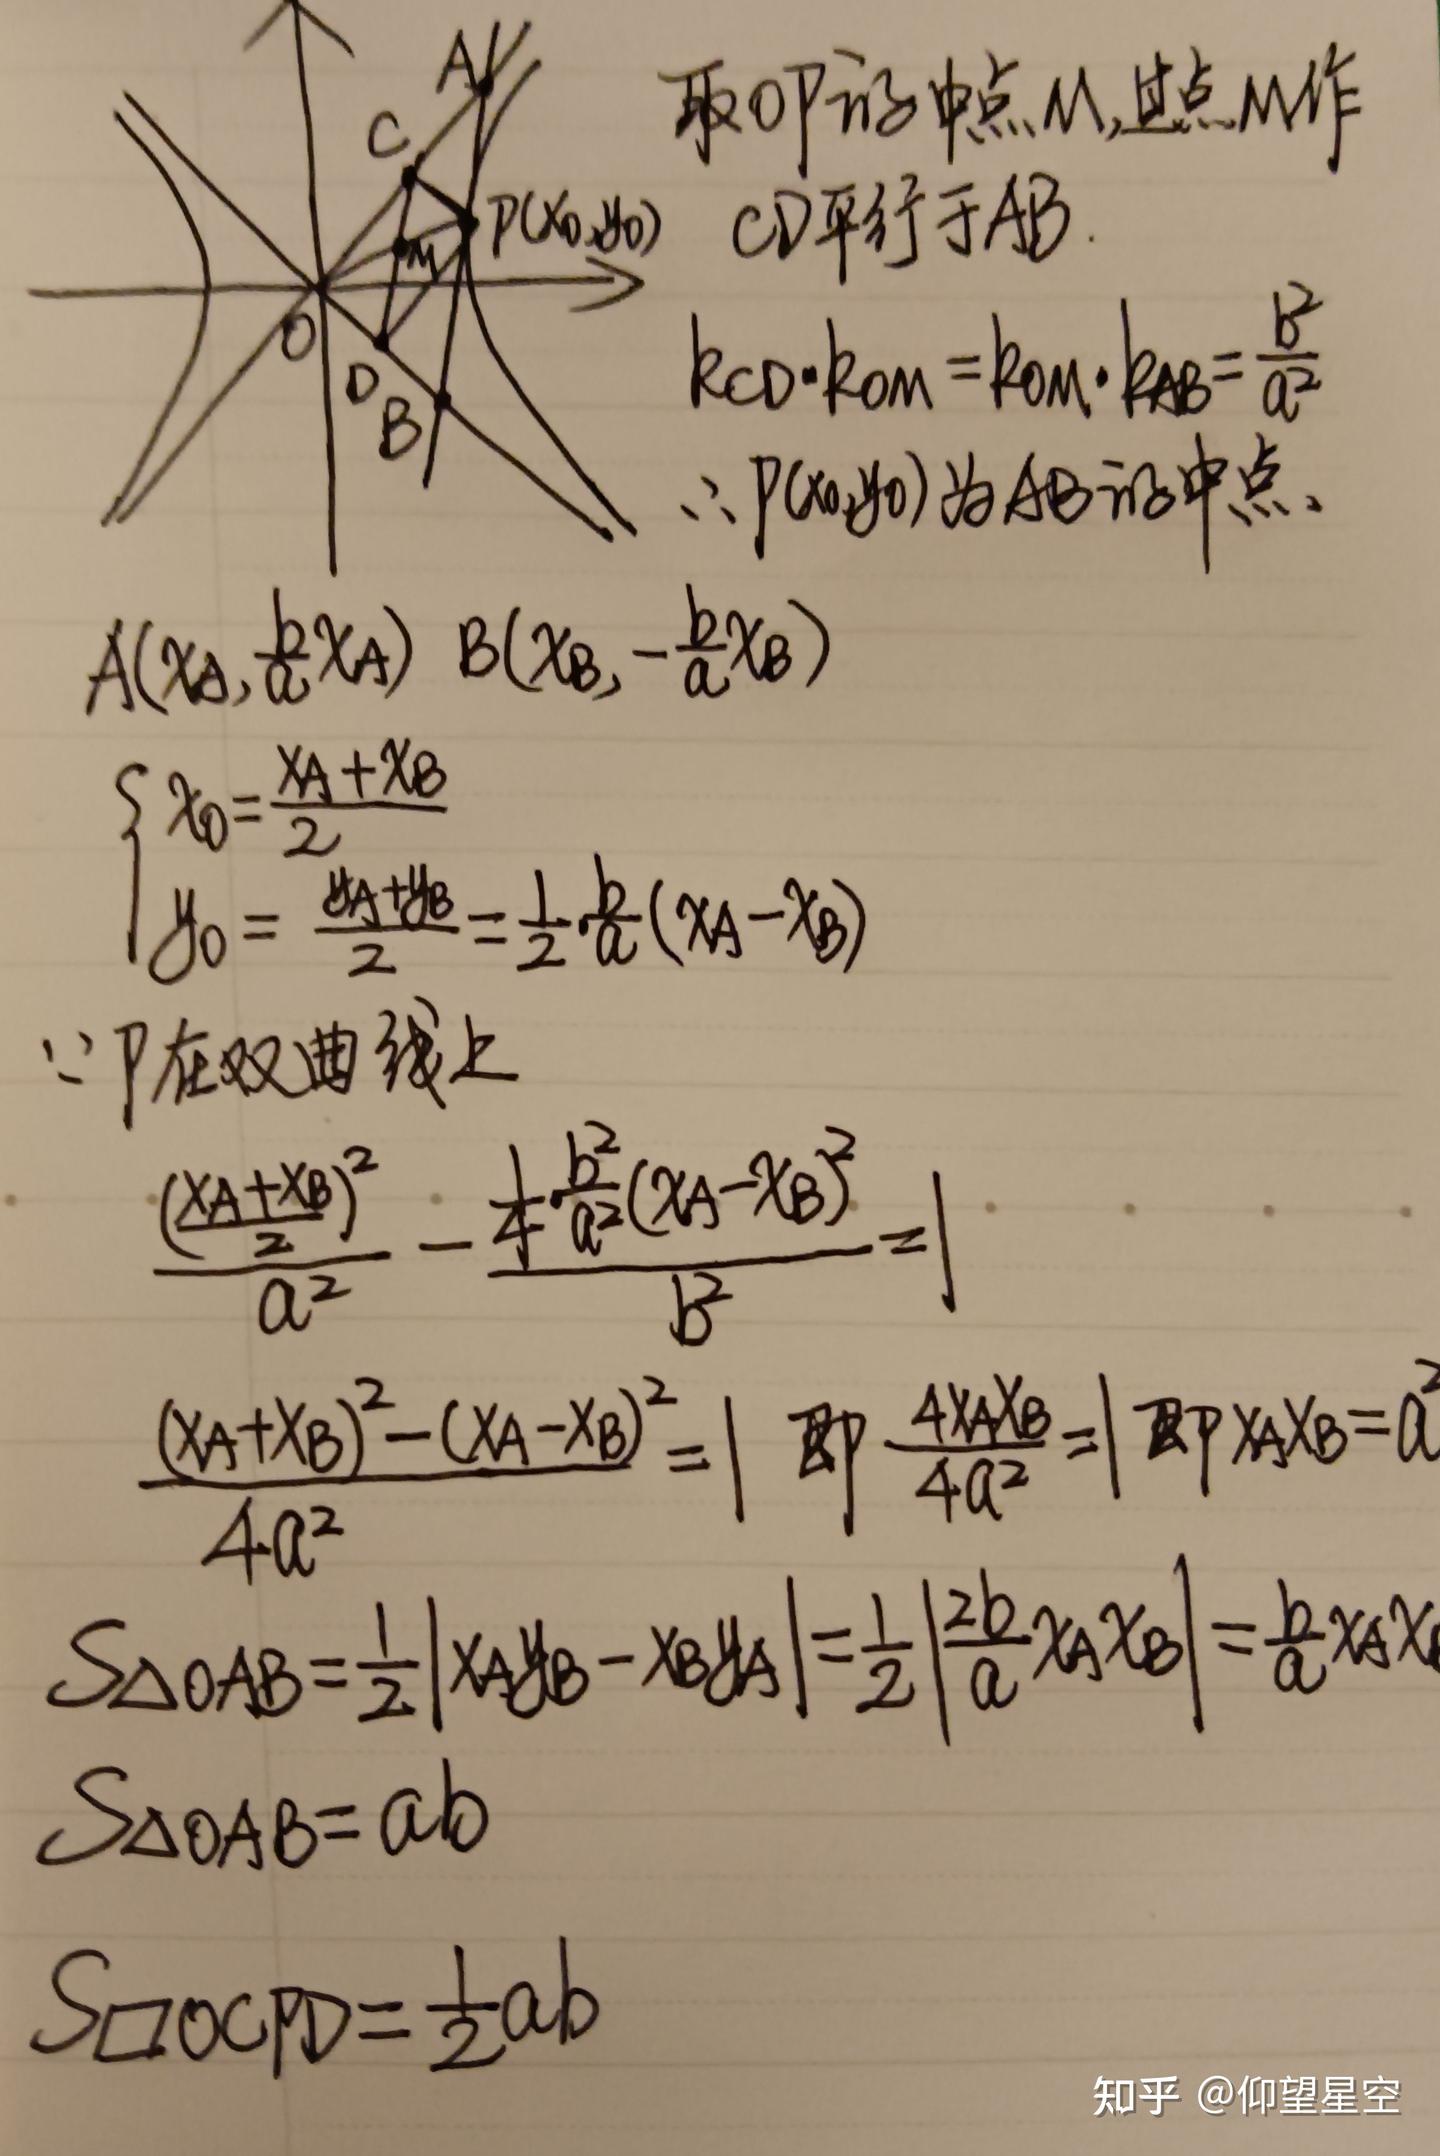 A
C
M
P(x₀,y₀)
O
D
B
取OP的中点M,过点M作
CD平行于AB.
k_CD·k_OM=k_OM·k_AB=b²/a²
∴P(x₀,y₀)为AB的中点.
A(x_A, b/a x_A) B(x_B, -b/a x_B)
{x₀=(x_A+x_B)/2
y₀=(y_A+y_B)/2=1/2·b/a(x_A-x_B)
∵P在双曲线上
((x_A+x_B)/2)²/a² - (1/4·b²/a²(x_A-x_B)²)/b²=1
((x_A+x_B)²-(x_A-x_B)²)/4a²=1 即 4x_Ax_B/4a²=1 即x_Ax_B=a²
S△OAB=1/2|x_Ay_B-x_By_A|=1/2|2b/a x_Ax_B|=b/a x_Ax_B
S△OAB=ab
S▱OCPD=1/2ab
知乎 @仰望星空